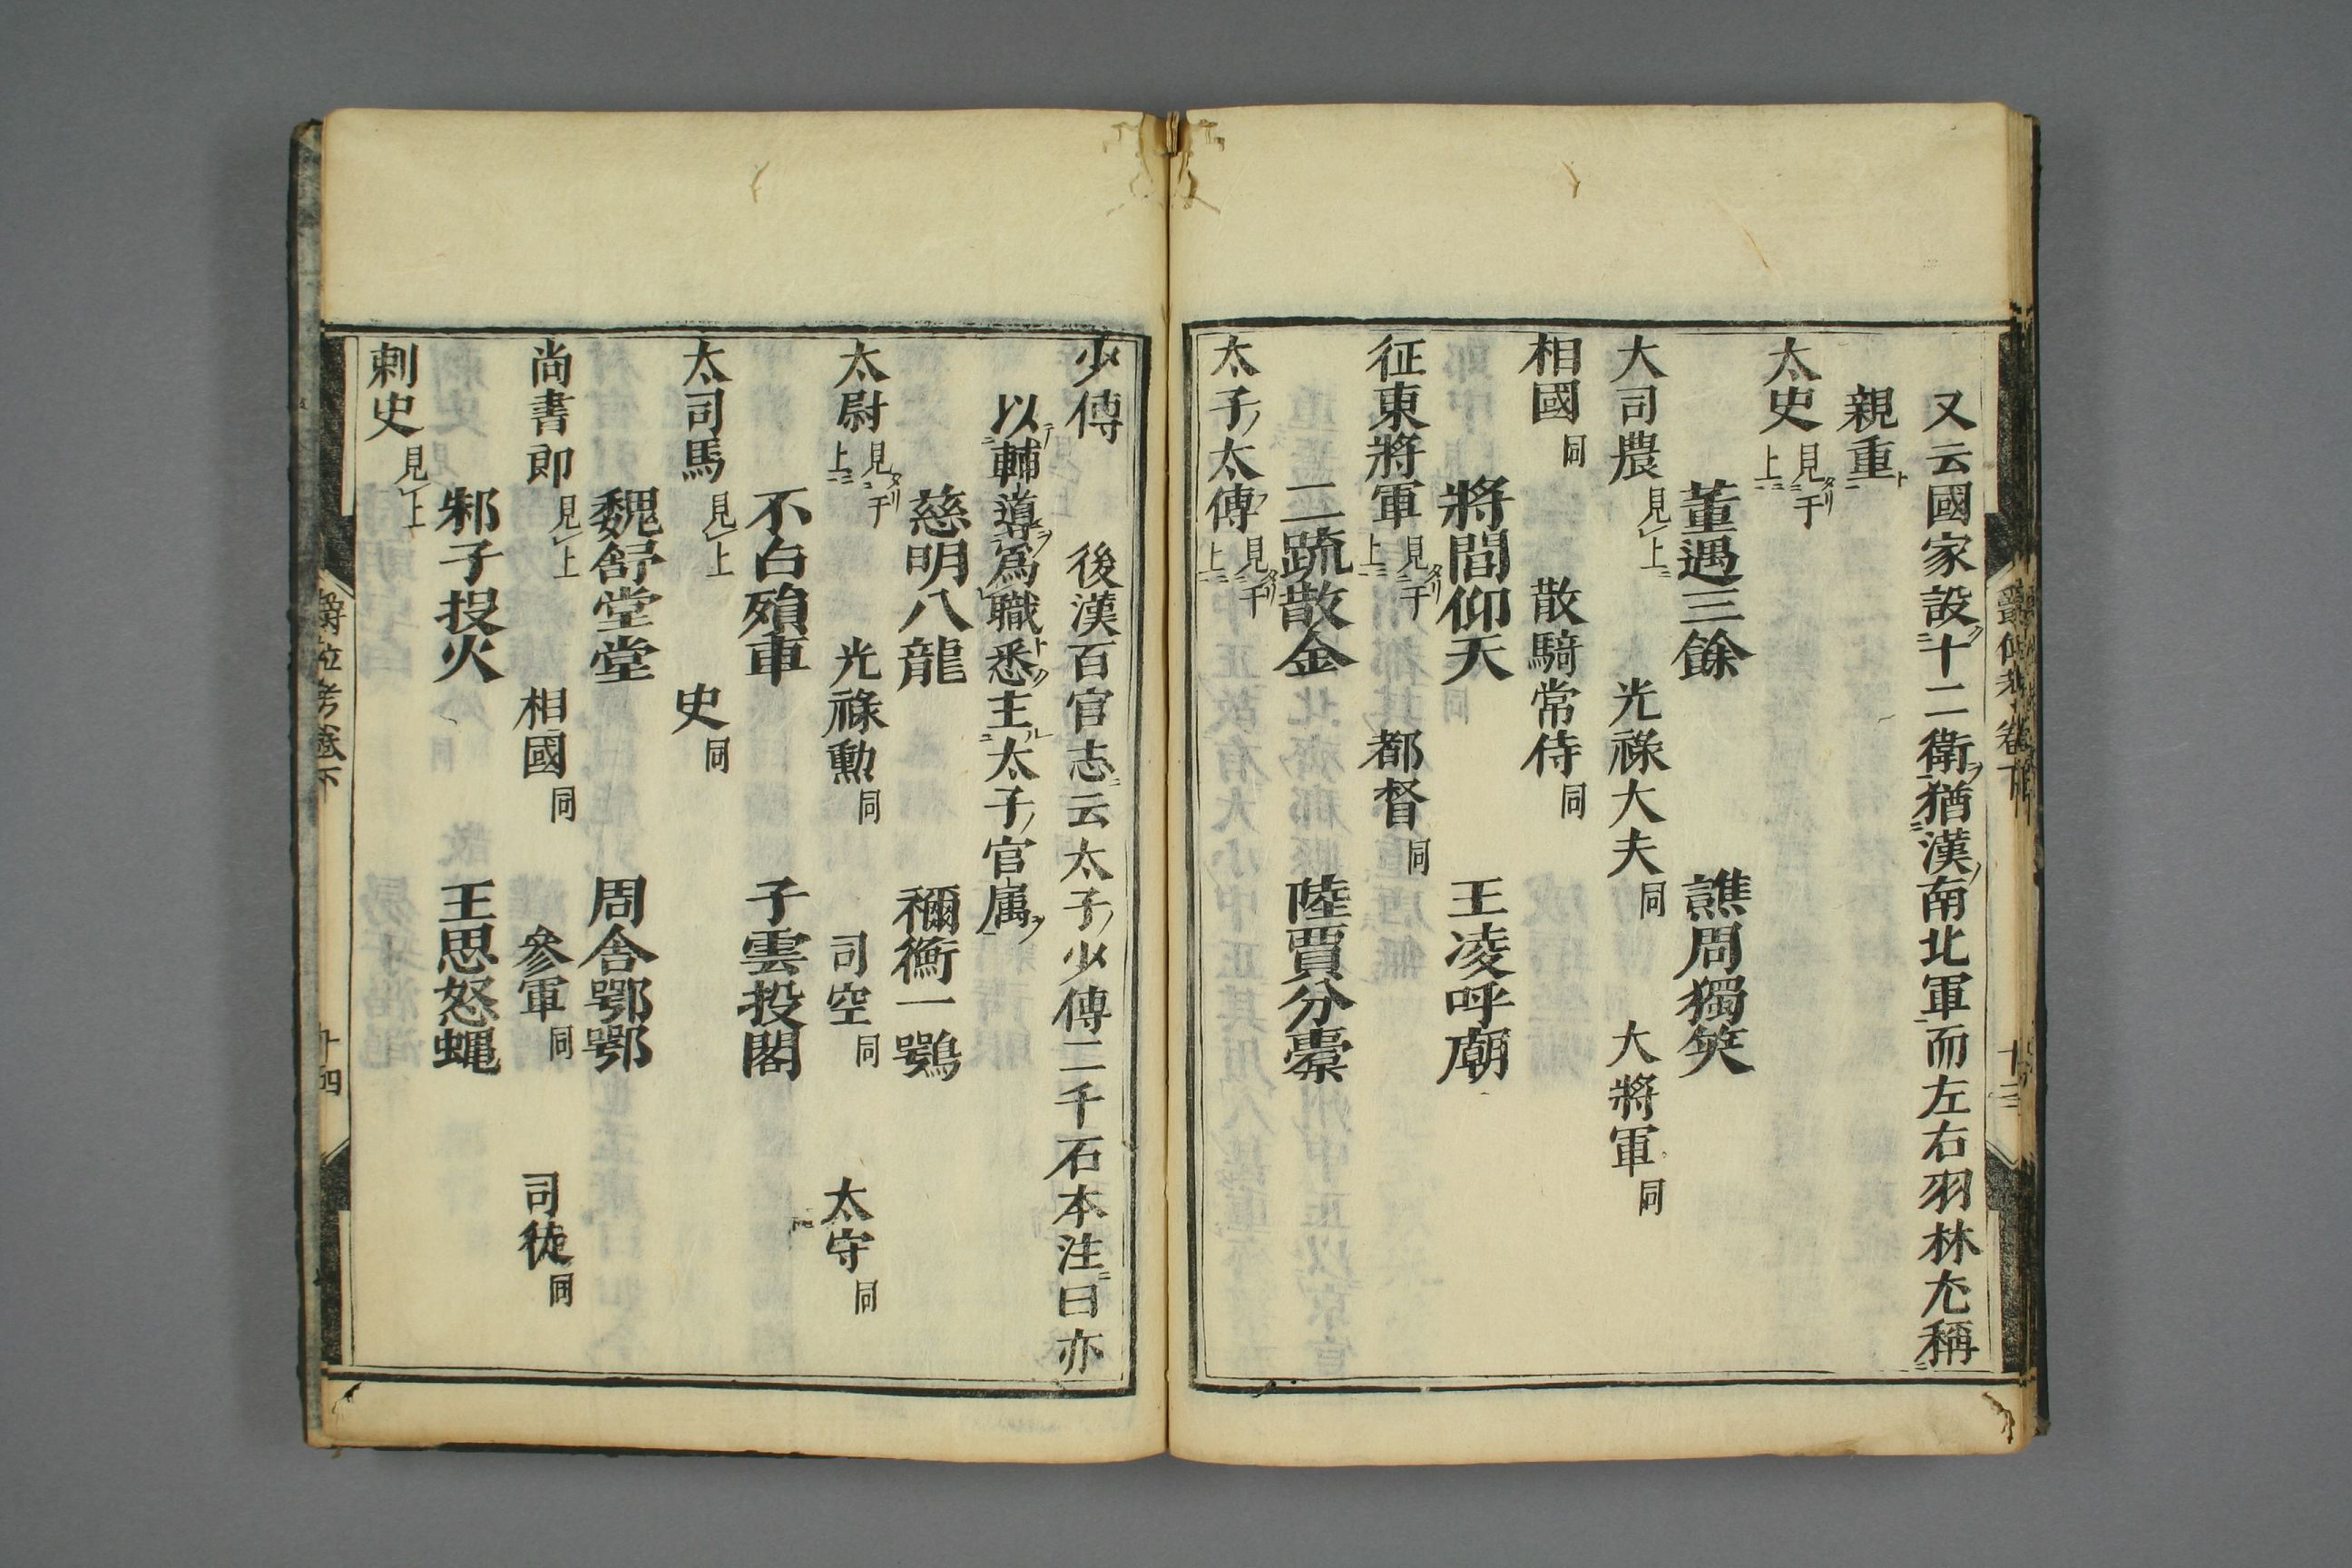 又云國家設十二衛猶漢南北軍而左右羽林尢稱
親重
太史見于上
董遇三餘　譙周獨笑
大司農見上　光祿大夫同　大將軍同
相國同　散騎常侍同
將閭仰天　王凌呼廟
征東將軍見于上　都督同
二疏散金　陸賈分橐
太子太傅見于上
少傅　後漢百官志云太子少傅二千石本注曰亦
以輔導爲職悉主太子官属
慈明八龍　禰衡一鶚
太尉見于上　光祿勳同　司空同　太守同
不占殞車　子雲投閣
太司馬見上　史同
魏舒堂堂　周舍鄂鄂
尚書郎見上　相國同　參軍同　司徒同
邾子投火　王思怒蝿
刺史見上
爵位考卷下
十四